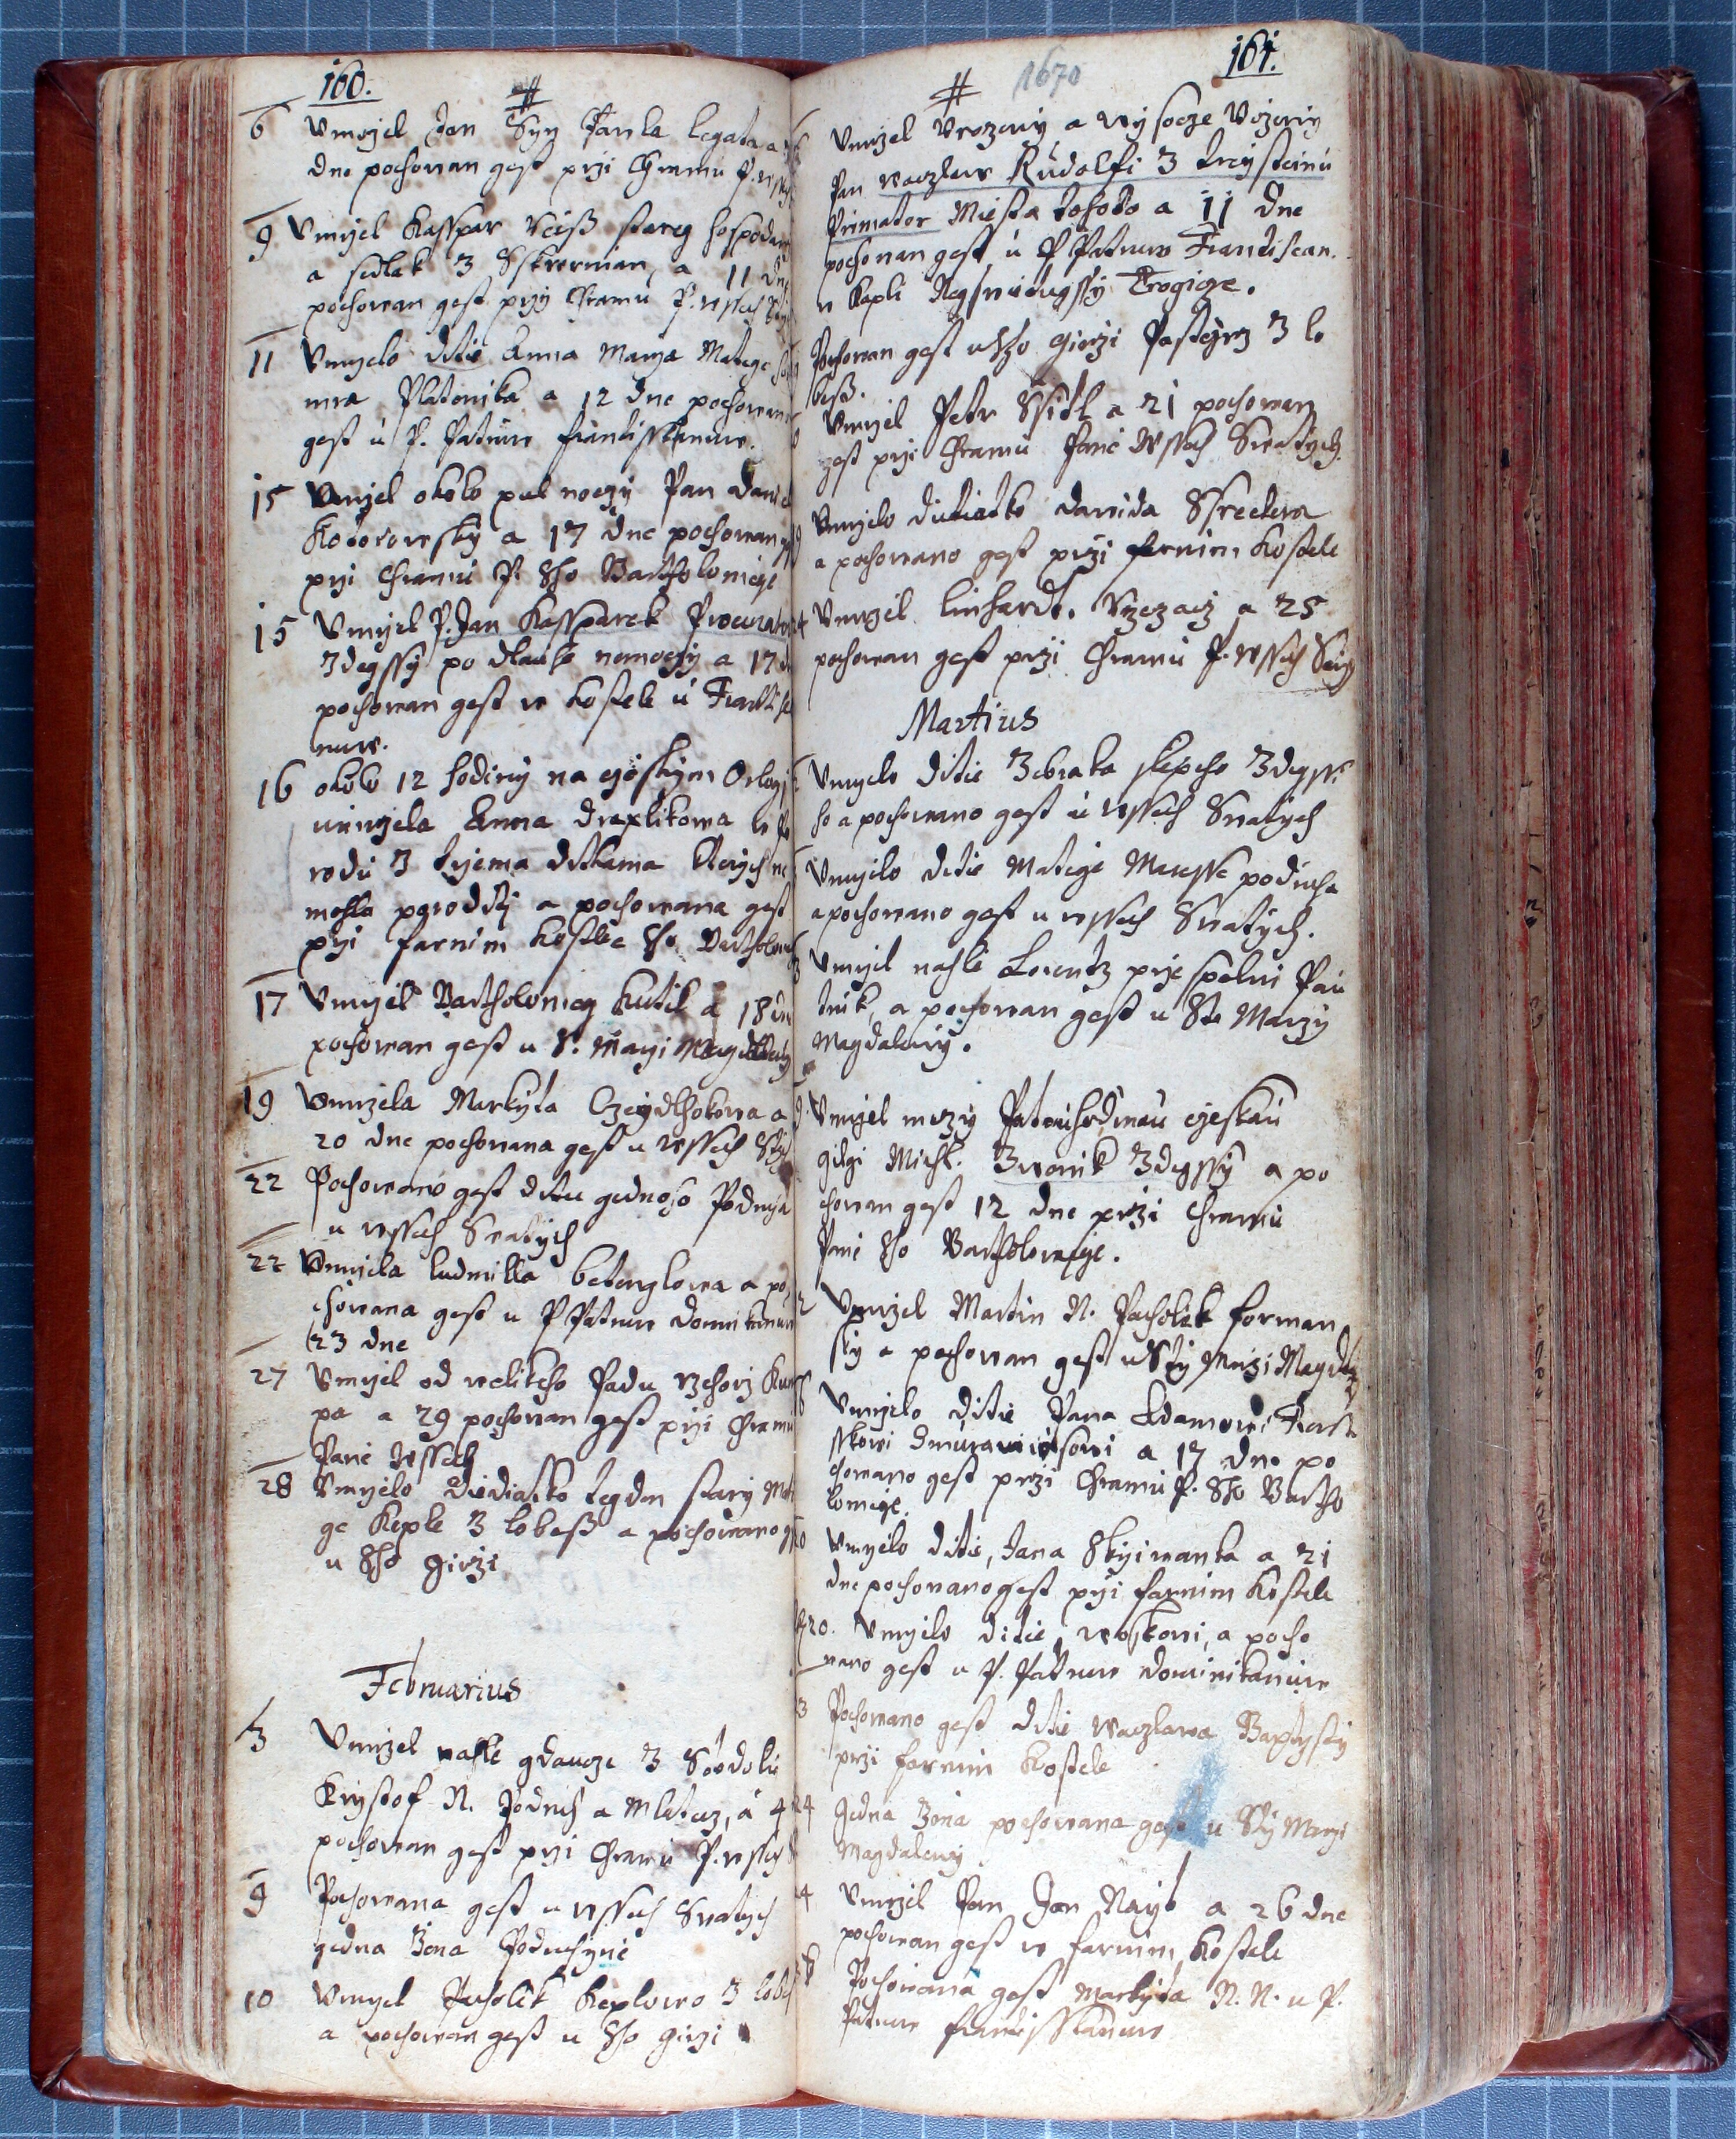 160.
6 Vmrzel Jan Syn Pawla Legata a
dne pochowan gest przi Chramu P. wssech
9 Vmrzel Kasspar Reiß starey hospodarz
a sedlak z Sskwrnian, a 11 dne
pochowan gest przi Chramu P. wssech
11 Vmrzelo ditie Anna Marya Matege
mra Platenika a 12 dne pochowana
gest u P. Patruw Frantisskanuw.
15 Vmrzel okolo pul noczy Pan Daniel
Kocorowsky a 17 dne pochowan
przi Chramu P. Sho Bartholomiege
15 Vmrzel P. Jan Kassparek Procurator
zdegssy po dlauke nemoczy a 17
pochowan gest w kostele u Frantisska
nuw.
16 okolo 12 hodiny na czeskym Orlogi
umrzela Anna Draxlikowa w
rodu z trzema ditkama kterych ne
mohla poroditi a pochowana gest
przi farnim kostele Sho Bartholome
17 Vmrzel Bartholomeg Kutil a 18 dne
pochowan gest u S. Marzi Magdaleny
19 Vmrzela Markyta a
20 dne pochowana gest u wssech
22 Pochowano gest ditie gednoho Podruha
u wssech Swatych
22 Vmrzela Ludmilla Betenglowa a po
chowana gest u P Patruw Dominikanuw
23 dne
27 Vmrzel od welikeho Padu Rzehorz
pa a 29 pochowan gest przi Chramu
Panie Wssech
28 Vmrzelo diediatko tegden stary Mate
ge Keple z Lobeß a pochowano
u Sho Girzi
Februarius
3 Vmrzel nahle gdaucze z
Krystof N. Podruh a Mlatecz, a 4
pochowan gest przi Chramu P. wssech
9 Pochowana gest u wssech Swatych
gedna Zena Podruhynie
10 Vmrzel Pacholek Keplowo z Lobeß
a pochowan gest u Sho Girzi
1670
161.
Vmrzel Vrozeny a wysocze Vczeny
Pan Waczlaw Rudolfi z
Primator Miesta tohoto a 11 dne
pochowan gest u P Patruw Franciscan.
w Kapli Neyswietiegssy Trogicze.
Pochowan gest u Sho Girzi Pastyrz z Lo
beß.
Vmrzel Petr Ssidl a 21 pochowan
gest przi Chramu Panie Wssech Swatych
Vmrzelo dietiatko Dawida Ssredera
a pochowano gest przi farnim kostele
Vmrzel Linhardt. a 25
pochowan gest przi Chramu P. wssech
Martius
Vmrzelo ditie zebraka slepeho zdegssi
ho a pochowano gest u wssech Swatych
Vmrzelo ditie Mategie podruha
a pochowano gest u wssech Swatych.
Vmrzel nahle Lorentz przespolni Pau
tnik, a pochowan gest u Ste Marzy
Magdaleny.
9 Vmrzel mezy Patau hodinau czeskau
gitrzi Mich. Zwonik zdegssy a po
chowan gest 12 dne przi Chramu
Panie Sho Bartholomiege.
2 Vmrzel Martin N. Pacholek forman
sky a pochowan gest u Sty Marzi Magdaleny
6 Vmrzelo ditie Pana Adamowi
sskowi a 17 dne po
chowano gest przi Chramu P. Sho Bartho
lomiege.
Vmrzelo ditie, Jana Skrziwanka a 21
dne pochowano gest przi farnim kostele
20. Vmrzelo ditie, woskowi, a pocho
wano gest u P. Patruw Dominikanuw
3 Pochowano gest ditie Waczlawa Baptysty
przi farnim kostele
24 Gedna Zena pochowana gest u Sty Marzi
Magdaleny
4 Vmrzel Pan Jan a 26 dne
pochowan gest w farnim kostele
Pochowana gest Markyta N. N. u P.
Patruw Frantisskanuw